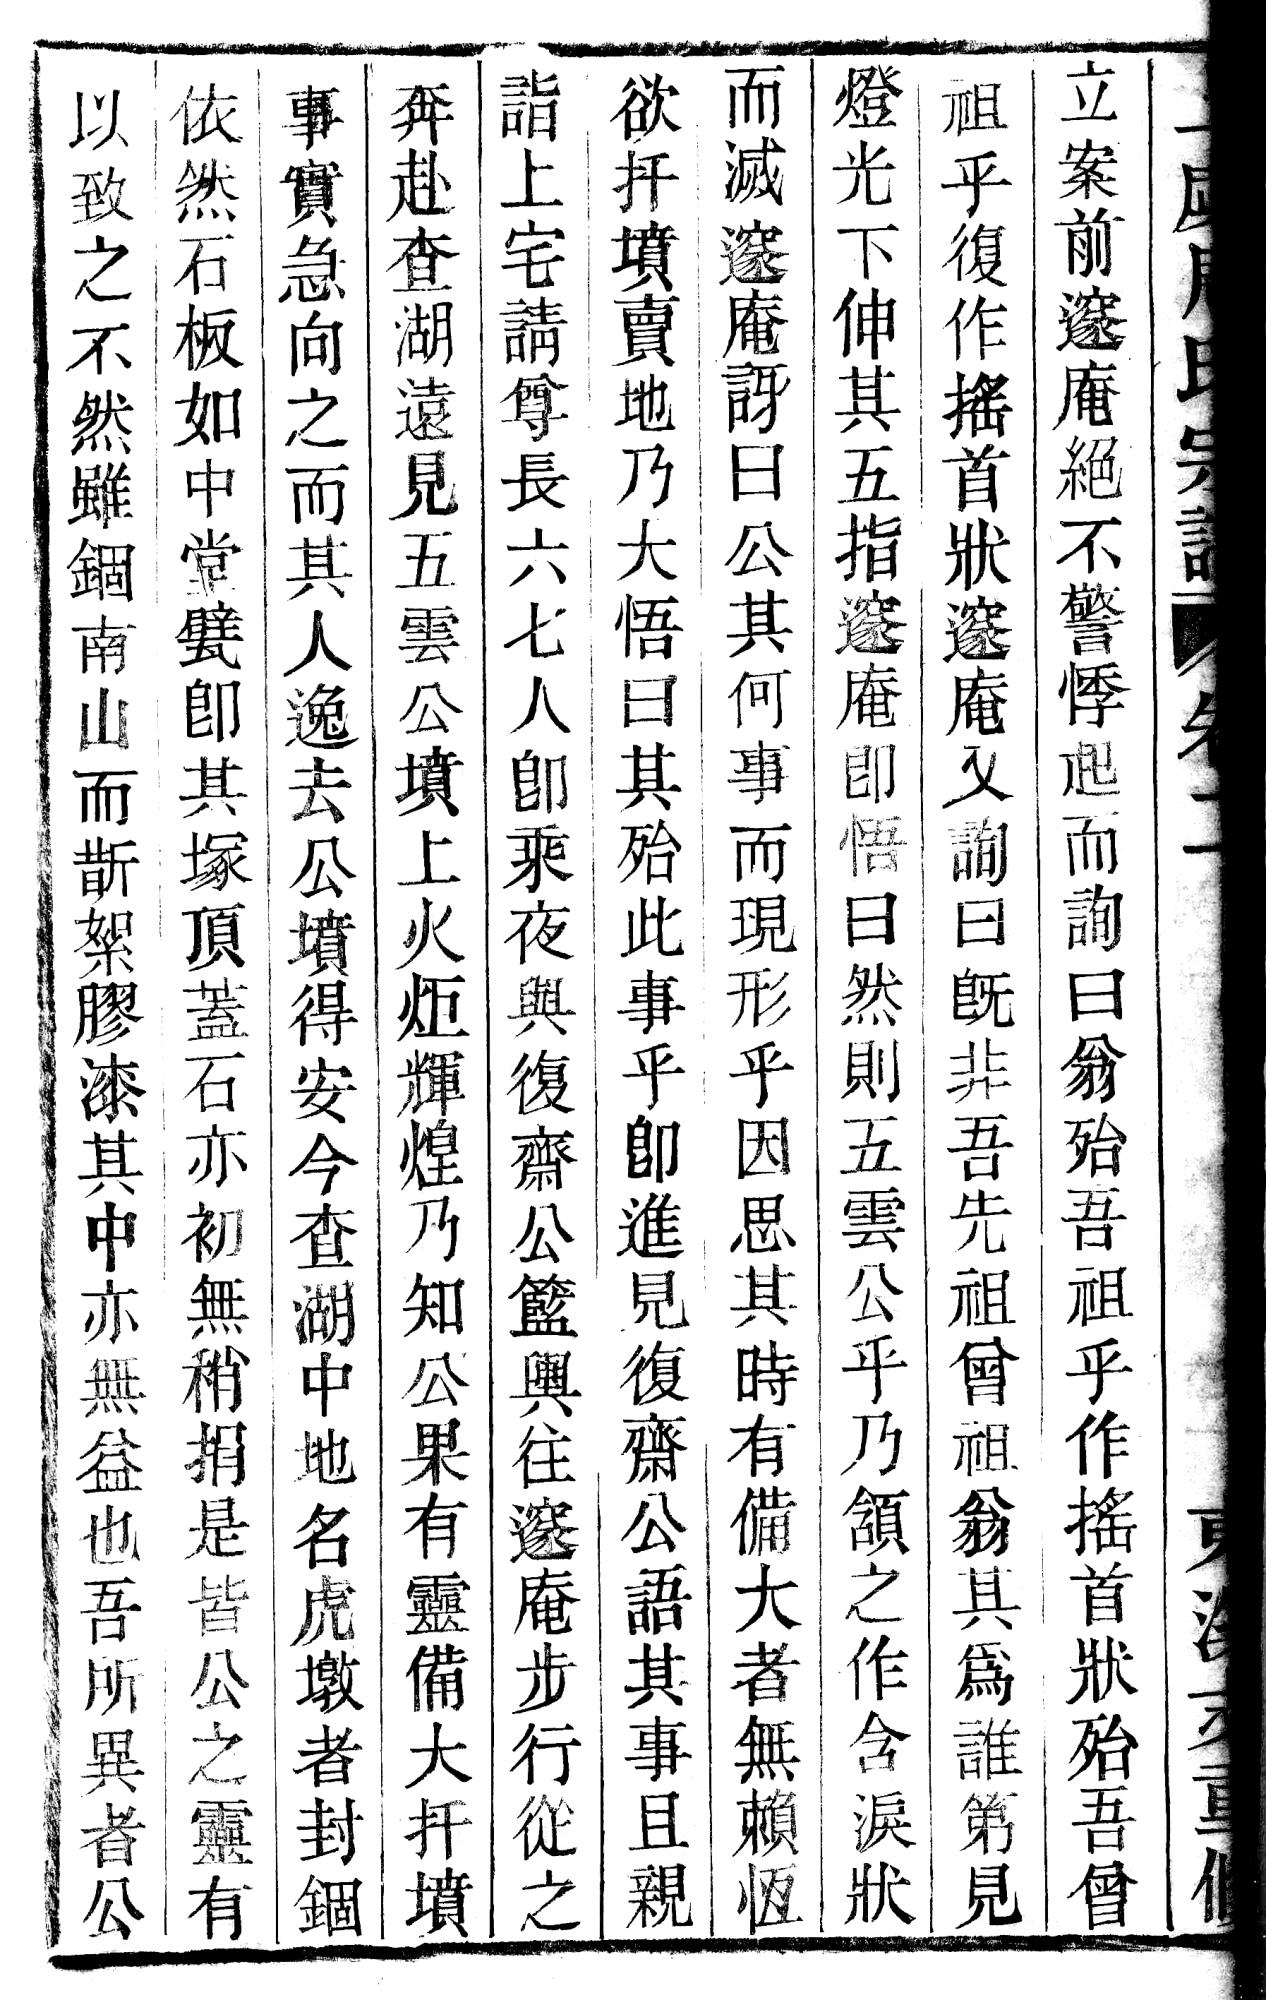 立案前邃庵絕不警悸起而詢曰翁殆吾祖乎作搖首狀殆吾曾
祖乎復作搖首狀邃庵又詢曰旣非吾先祖曾祖翁其爲誰第見
燈光下伸其五指邃庵卽悟曰然則五雲公乎乃頷之作含淚狀
而滅邃庵訝曰公其何事而現形乎因思其時有備大者無賴恆
欲扦墳賣地乃大悟曰其殆此事乎卽進見復齋公語其事且親
詣上宅請尊長六七人卽乘夜與復齋公籃輿往邃庵步行從之
奔赴查湖遠見五雲公墳上火炬輝煌乃知公果有靈備大扦墳
事實急向之而其人逸去公墳得安今查湖中地名虎墩者封錮
依然石板如中堂甓卽其塚頂蓋石亦初無稍損是皆公之靈有
以致之不然雖錮南山而斮絮膠漆其中亦無益也吾所異者公
氏宗譜 卷二